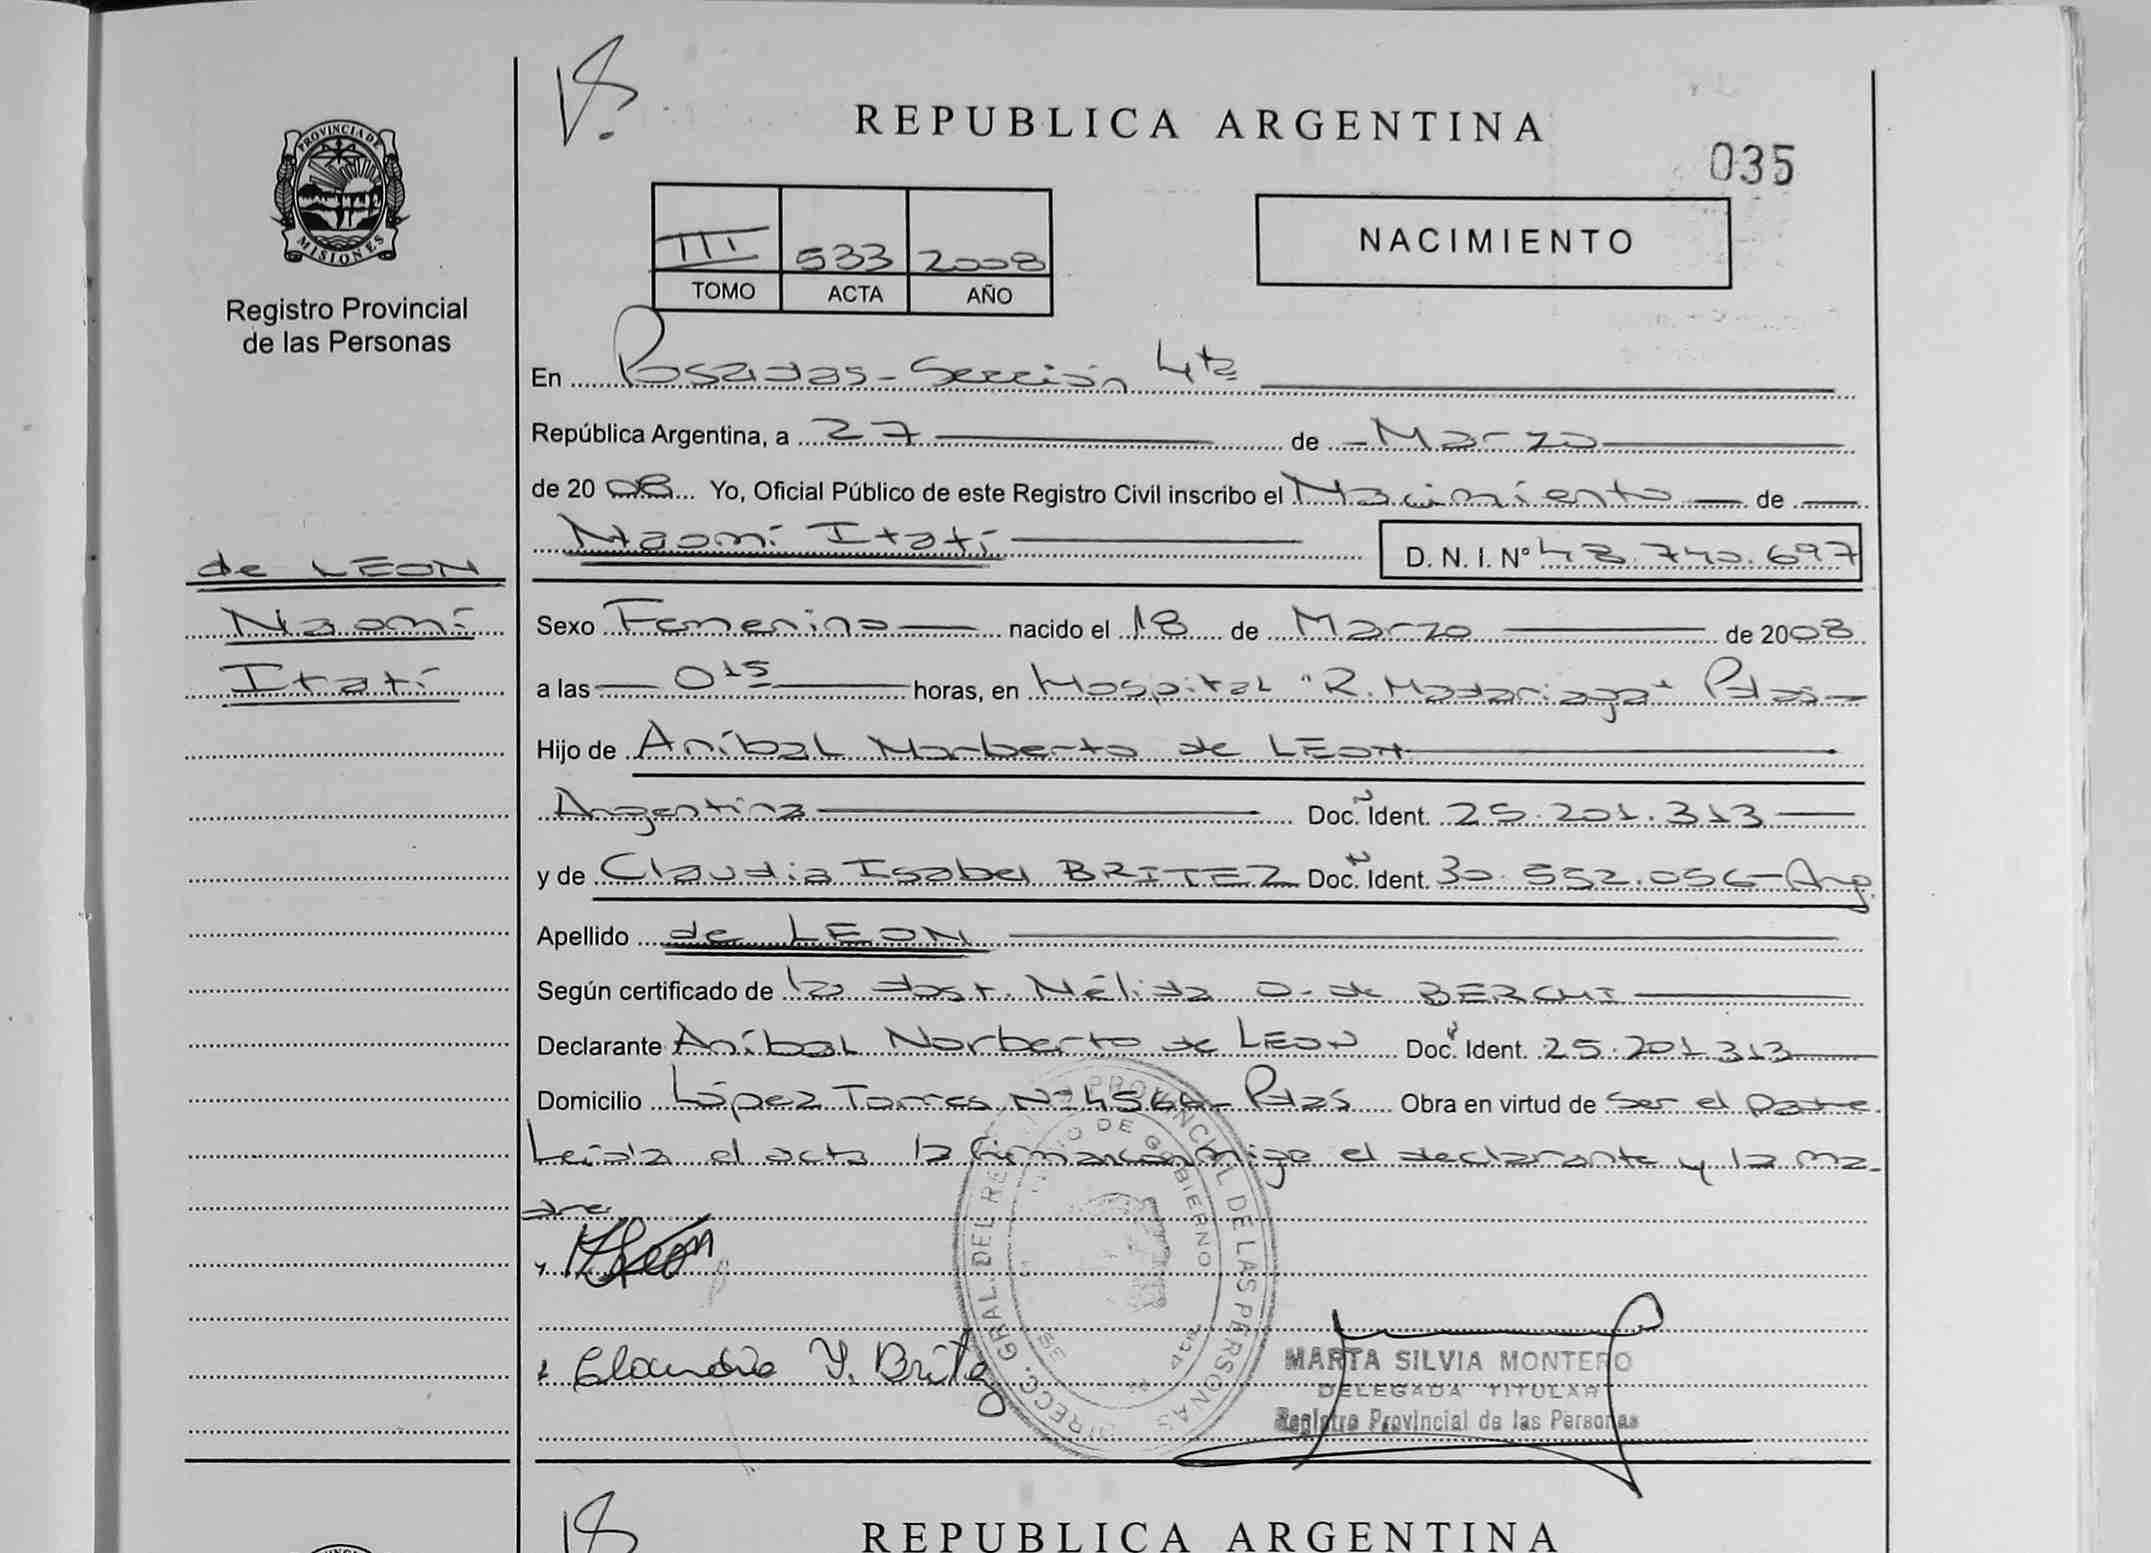 REPUBLICA ARGENTINA
035
PROVINCIA DE MISIONES
Registro Provincial
de las Personas
III 533 2008
TOMO ACTA AÑO
NACIMIENTO
En Posadas - Sección 4ta
República Argentina, a 27 de Marzo
de 2008 Yo, Oficial Público de este Registro Civil inscribo el Nacimiento de
Naomí Itatí D. N. I. Nº 48.740.697
de LEON
Naomí
Itatí
Sexo Femenino nacido el 18 de Marzo de 2008
a las 0 15 horas, en Hospital "R. Madariaga" Pdas
Hijo de Aníbal Norberto de LEON
Argentina Doc. Ident. 25.201.313
y de Claudia Isabel BRITEZ Doc. Ident. 30.552.056 - Arg.
Apellido de LEON
Según certificado de la obst. Nélida O. de BERCHI
Declarante Aníbal Norberto de LEON Doc. Ident. 25.201.313
Domicilio López Torres Nº 4564 - Pdas Obra en virtud de Ser el Padre.
Leída el acta la firman conmigo el declarante y la ma-
dre
Claudia Y. Britez
DIRECC. GRAL. DEL REG. PROVINCIAL DE LAS PERSONAS
DE GOBIERNO
MARTA SILVIA MONTERO
DELEGADA TITULAR
Registro Provincial de las Personas
REPUBLICA ARGENTINA